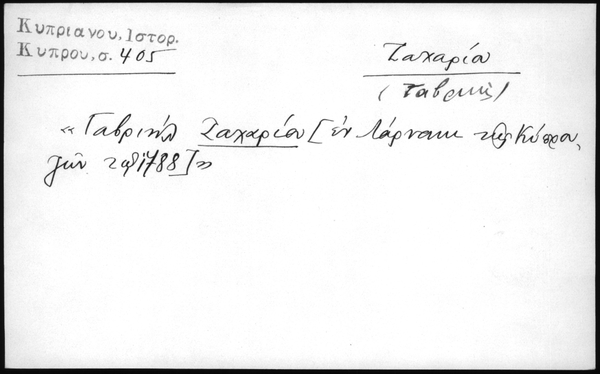 Κυπριανου, Ιστορ.
Κυπρου, σ. 405
Ζαχαρίου
(Γαβριήλ)
« Γαβριήλ Ζαχαρίου [ἐν Λάρνακι τῆς Κύπρου,
1788]»